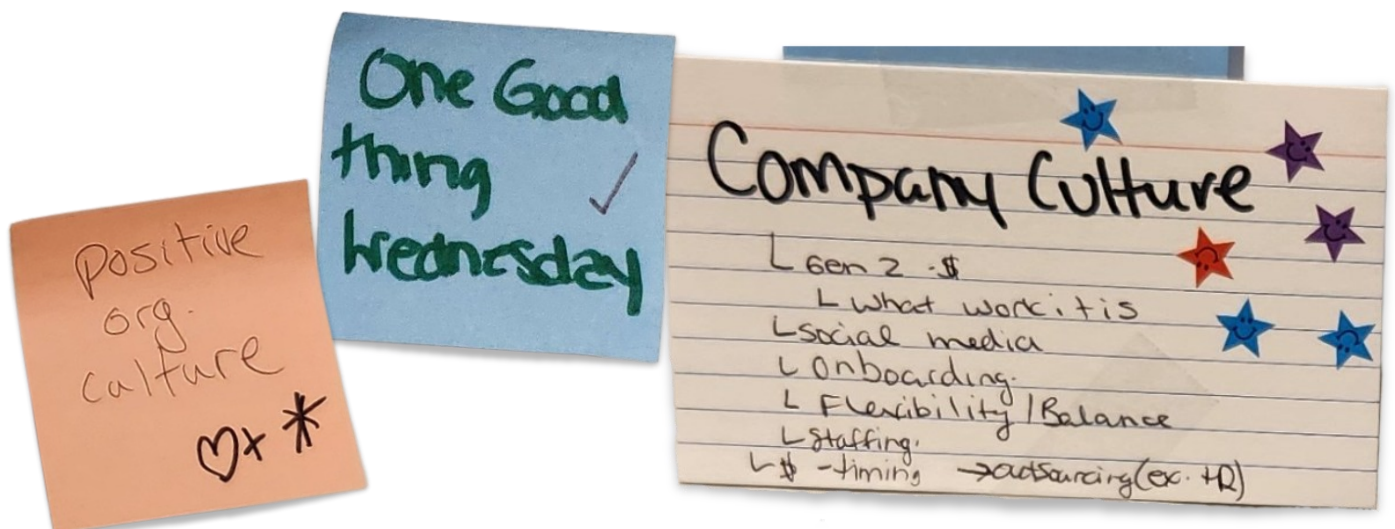 positive
org.
culture
♡+ *
One Good
thing
Wednesday ✓
Company Culture
└ Gen 2 - $
└ What work it is
└ social media
└ Onboarding.
└ Flexibility / Balance
└ Staffing.
└ $ - timing → outsourcing (ex. HR)